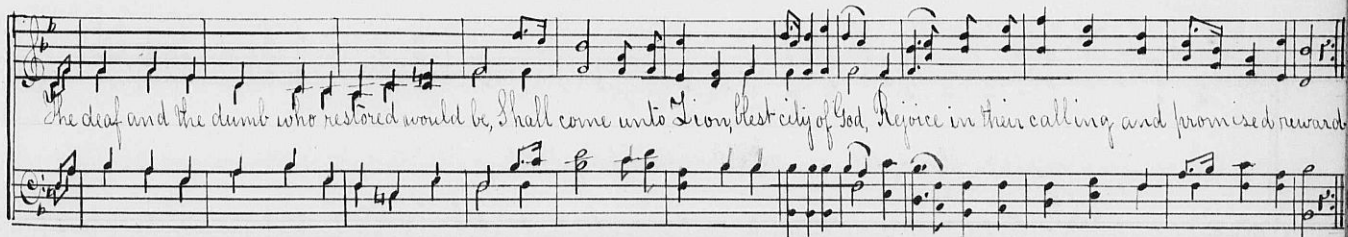 The deaf and the dumb who restored would be, Shall come unto Zion, blest city of God, Rejoice in their calling and promised reward